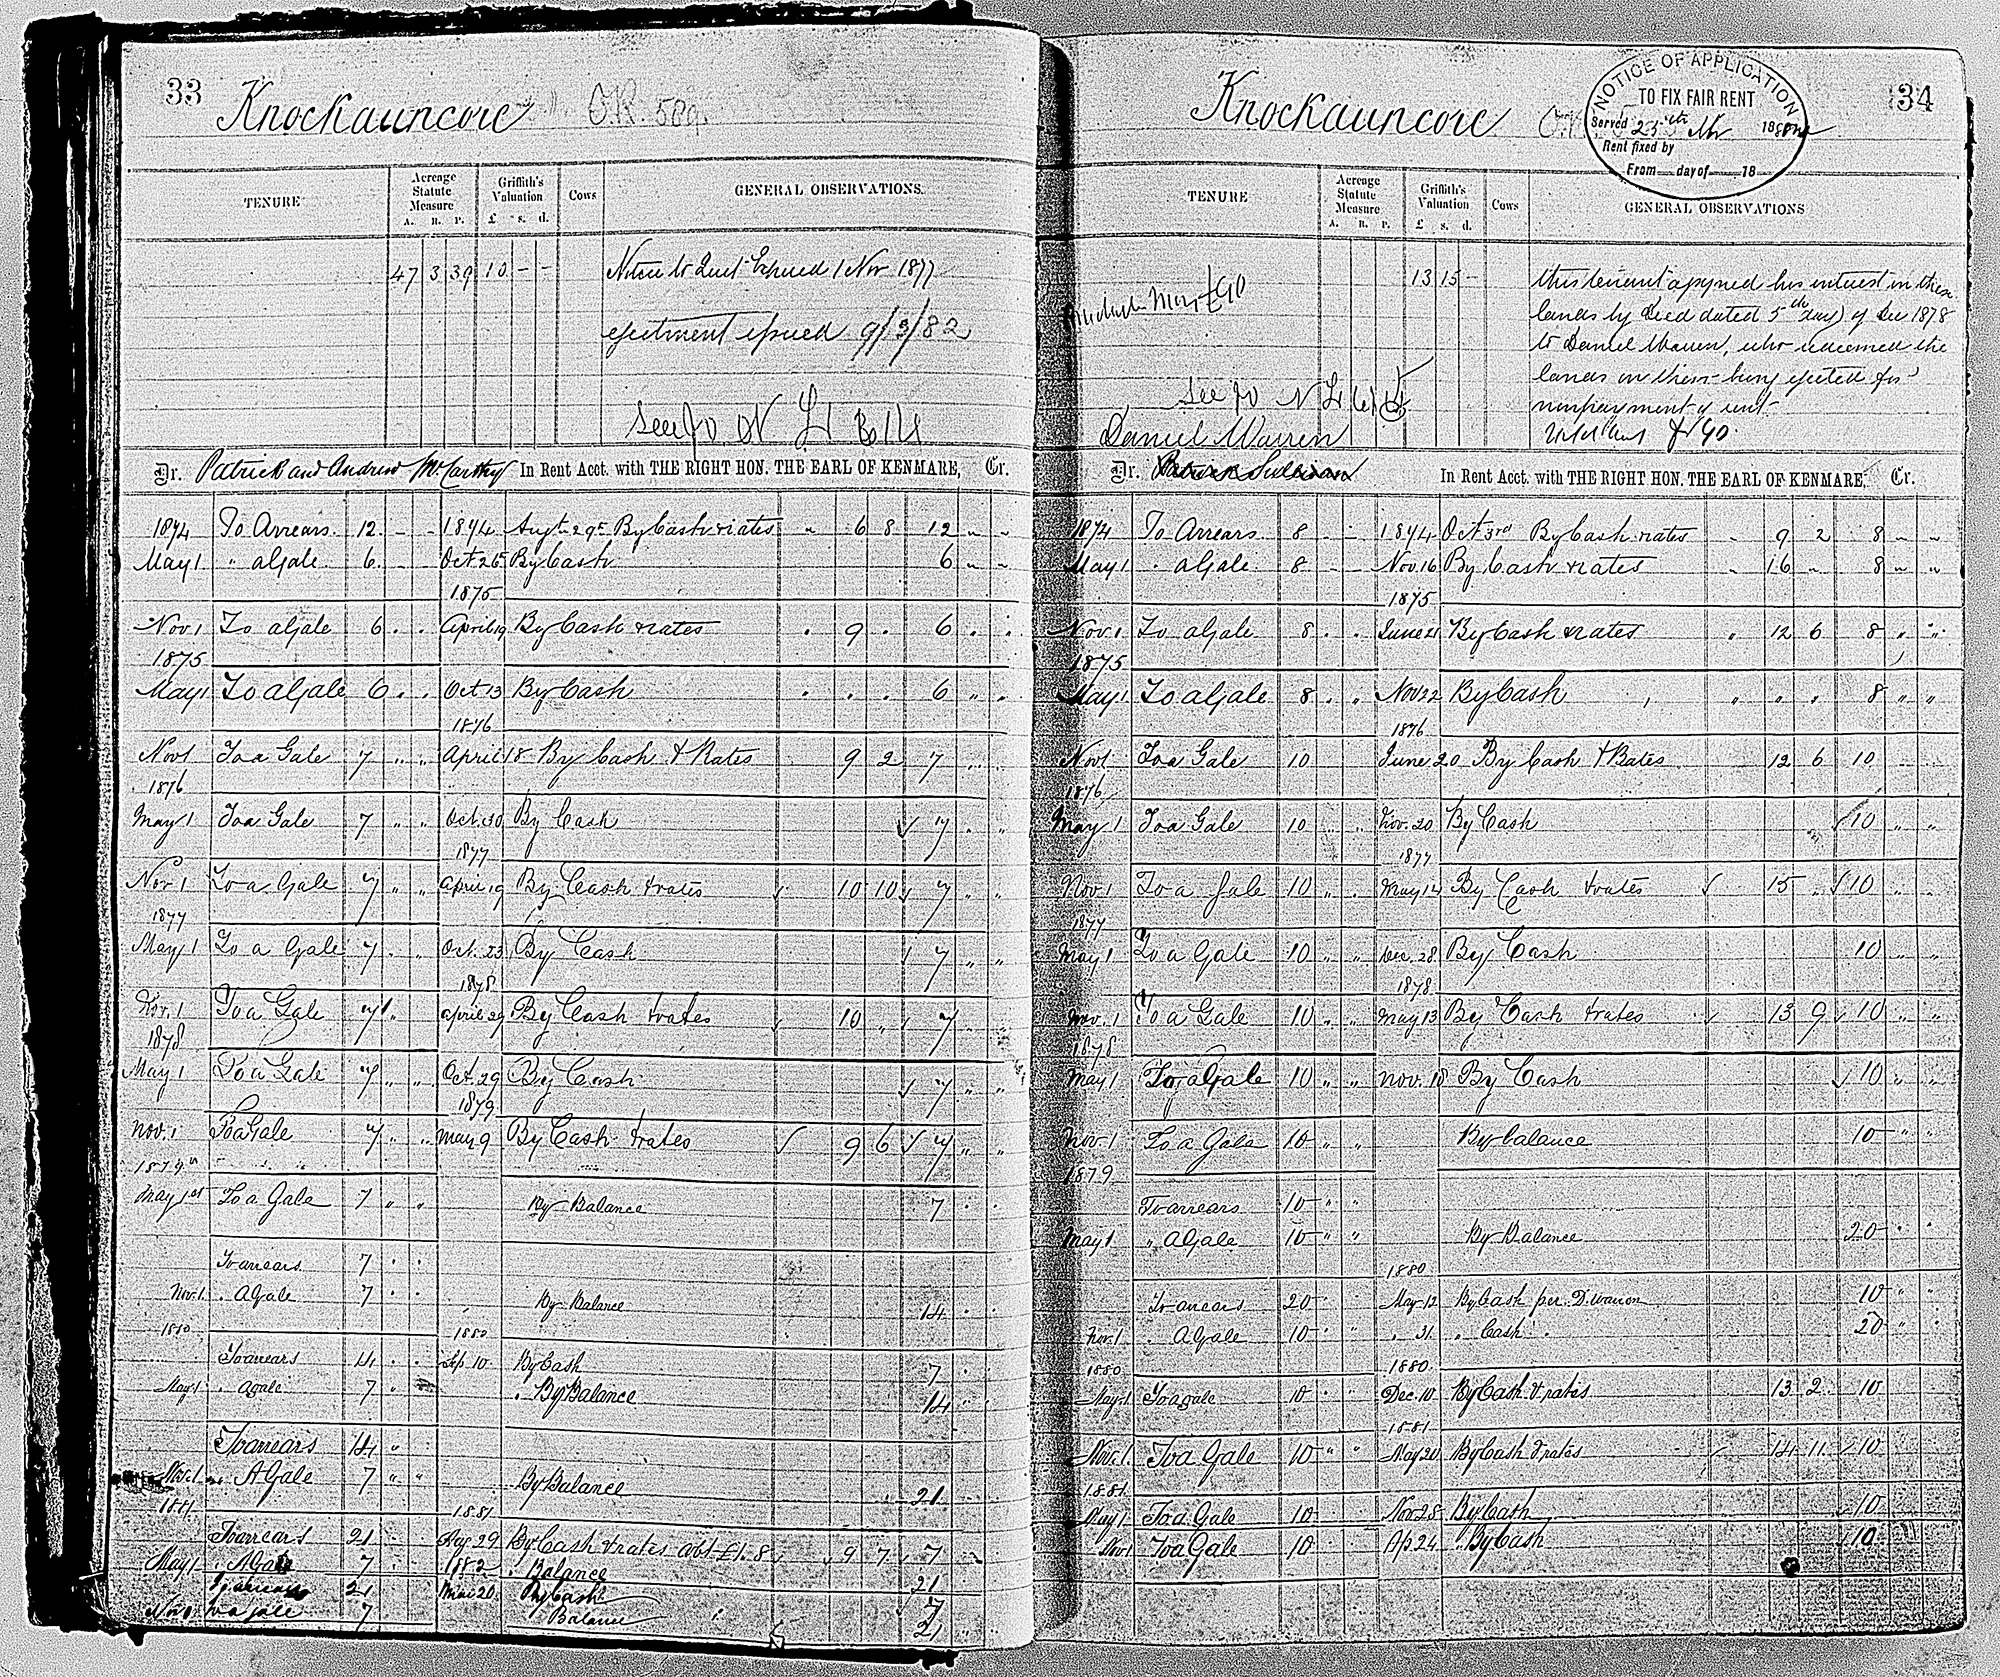 33
Knockauncore O.R. 589.
TENURE
Acreage Statute Measure
A. R. P.
Griffith's Valuation
£ s. d.
Cows
GENERAL OBSERVATIONS.
47 3 39 10 - -
Notice to Quit Expired 1 Nov 1877
ejectment issued 9/3/82
See
Dr. Patrick and Andrew McCarthy In Rent Acct. with THE RIGHT HON. THE EARL OF KENMARE, Cr.
1874 To Arrears. 12 - - 1874 Augt. 29th By Cash & rates " 6 8 12 " "
May 1 " a Gale 6 - - Oct. 26 By Cash 6 " "
1875
Nov 1 To a Gale 6 . . April 19 By Cash & rates . 9 . 6 . .
1875
May 1 To a Gale 6 . . Oct 13 By Cash . . . 6 " "
1876
Nov 1 To a Gale 7 " " April 18 By Cash & Rates 9 2 7 " "
1876
May 1 To a Gale 7 " " Oct. 30 By Cash 7 " "
1877
Nov 1 To a Gale 7 " " April 19 By Cash & rates 10 10 7 " "
1877
May 1 To a Gale 7 " " Oct. 23 By Cash 7 " "
1878
Nov. 1 To a Gale 7 " " April 29 By Cash & rates 10 " 7 " "
1878
May 1 To a Gale 7 " " Oct. 29 By Cash 7 " "
1879
Nov. 1 To a Gale 7 " " May 9 By Cash & rates 9 6 7 " "
1879
May 1st To a Gale 7 " " By Balance 7 . .
To arrears 7 . .
Nov. 1 . A Gale 7 . . By Balance 14 .
1880 1880
To arrears 14 . . Sep 10 By Cash 7 .
May 1 . a gale 7 " By Balance 14 .
To arrears 14 "
Nov. 1 . A Gale 7 " " By Balance 21 .
1881 1881
To arrears 21 Aug 29 By Cash & rates abt £1.8 9 7 7
May 1 . A Gale 7 1882 . Balance 21
To arrears 21 Mar 20. By Cash 7
Nov 1 To a gale 7 Balance 21
34
Knockauncore
NOTICE OF APPLICATION
TO FIX FAIR RENT
Served 25th 18
Rent fixed by
From day of 18
TENURE
Acreage Statute Measure
A. R. P.
Griffith's Valuation
£ s. d.
Cows
GENERAL OBSERVATIONS
13 15 -
this tenant assigned his interest in these
lands by Deed dated 5th day of Dec 1878
to Daniel Warren, who redeemed the
lands on their being ejected for
nonpayment of rent.
£40.
£90
See
Daniel Warren
Dr. Patrick Sullivan In Rent Acct. with THE RIGHT HON. THE EARL OF KENMARE, Cr.
1874 To Arrears 8 - - 1874 Oct 3rd By Cash & rates - 9 2 8 " "
May 1 . a Gale 8 - - Nov. 16 By Cash & rates " 16 " 8 " "
1875
Nov. 1 To a Gale 8 . . June 21 By Cash & rates " 12 6 8 " "
1875
May 1 To a Gale 8 . " Nov 22 By Cash " " " 8 " "
1876
Nov 1 To a Gale 10 June 20 By Cash & Rates 12 6 10
1876
May 1 To a Gale 10 Nov. 20 By Cash 10 " "
1877
Nov. 1 To a Gale 10 " " May 14 By Cash & rates 15 " 10 " "
1877
May 1 To a Gale 10 " " Dec. 28 By Cash 10 " "
1878
Nov. 1 To a Gale 10 " " May 13 By Cash & rates 13 9 10 " "
1878
May 1 To a Gale 10 " " Nov. 18 By Cash 10 " "
Nov 1 To a Gale 10 " " By balance 10 " "
1879
To arrears 10 " "
May 1 " A Gale 10 " " By Balance 20 " "
1880
To arrears 20 " " May 12 By Cash per D. Warren 10 " "
Nov. 1 . A Gale 10 " " " 31 " Cash . 20 " "
1880 1880.
May 1 To a gale 10 " " Dec. 10 By Cash & rates 13 2 10
1881
Nov. 1. To a Gale 10 " " May 20 By Cash & rates 14 11 10
1881
May 1 To a Gale 10 Nov 28 By Cash 10
Nov 1 To a Gale 10 Ap 24 . By Cash 10